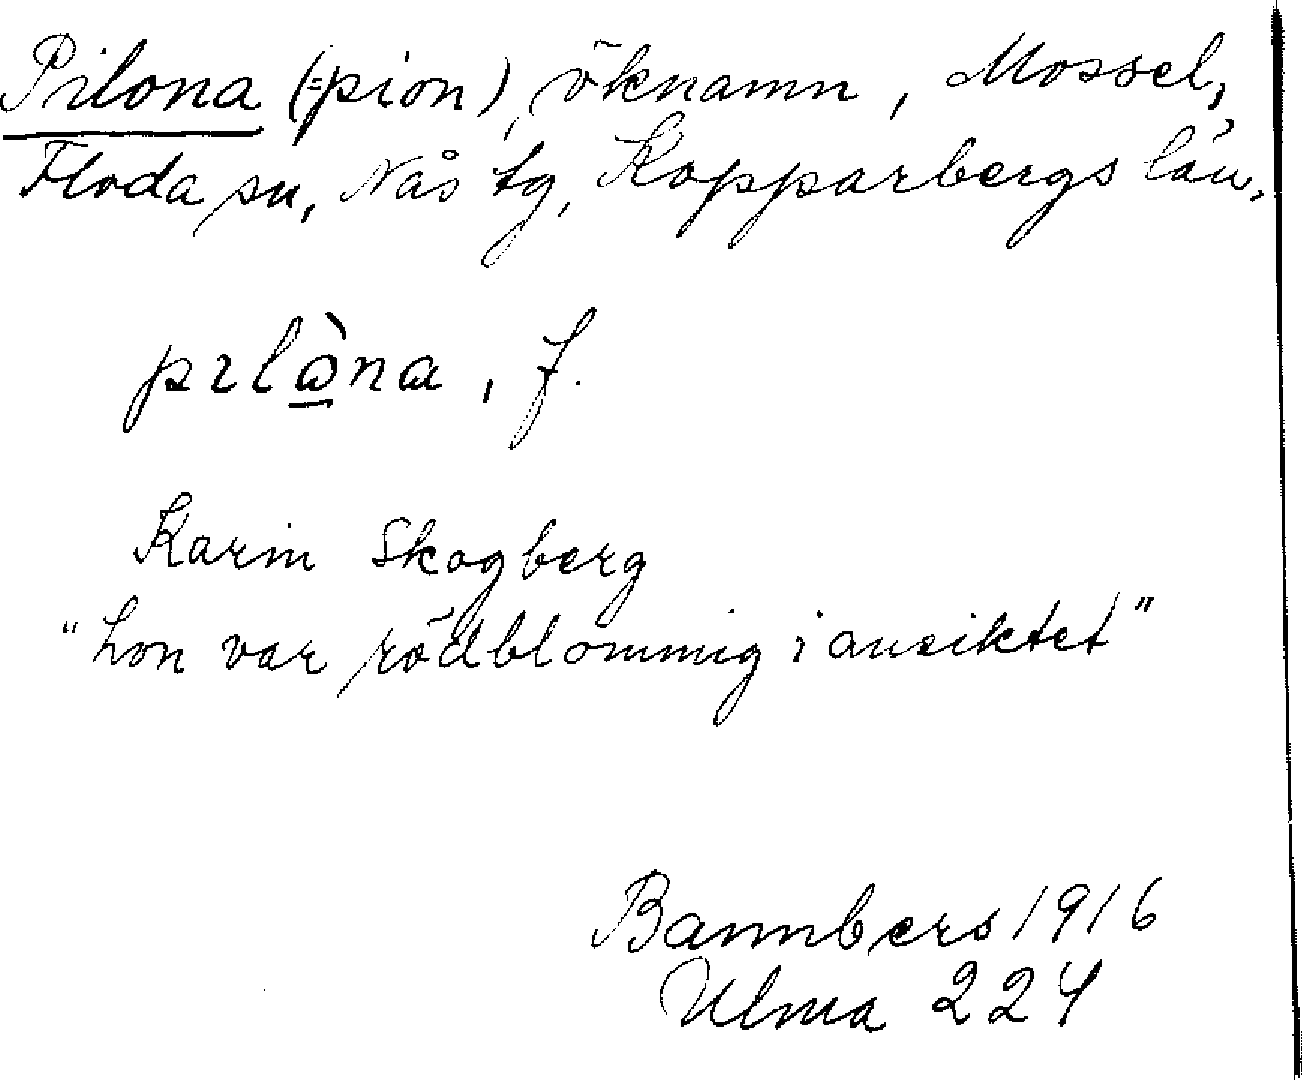 Pilona (=pion), öknamn, Mossel,
Floda sn, Nås tg, Kopparbergs län.
pılὼna, f.
Karin Skogberg
"hon var rödblommig i ansiktet"
Bannbers 1916
Ulma 224